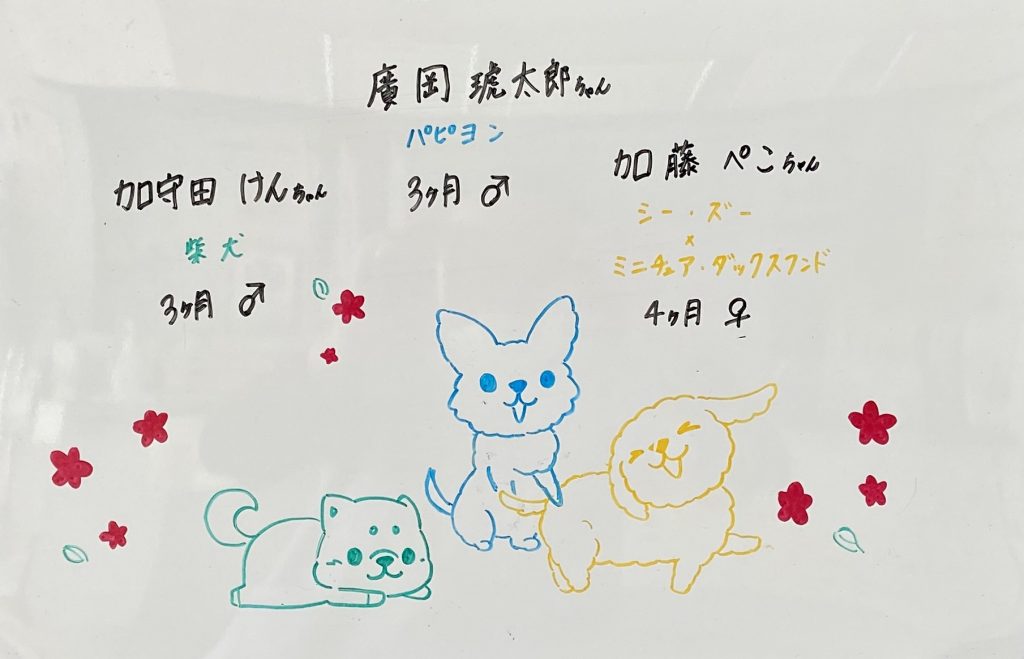 廣岡 琥太郎ちゃん
パピヨン
3ヶ月 ♂
加守田 けんちゃん
柴犬
3ヶ月 ♂
加藤 ぺこちゃん
シー・ズー
×
ミニチュア・ダックスフンド
4ヶ月 ♀